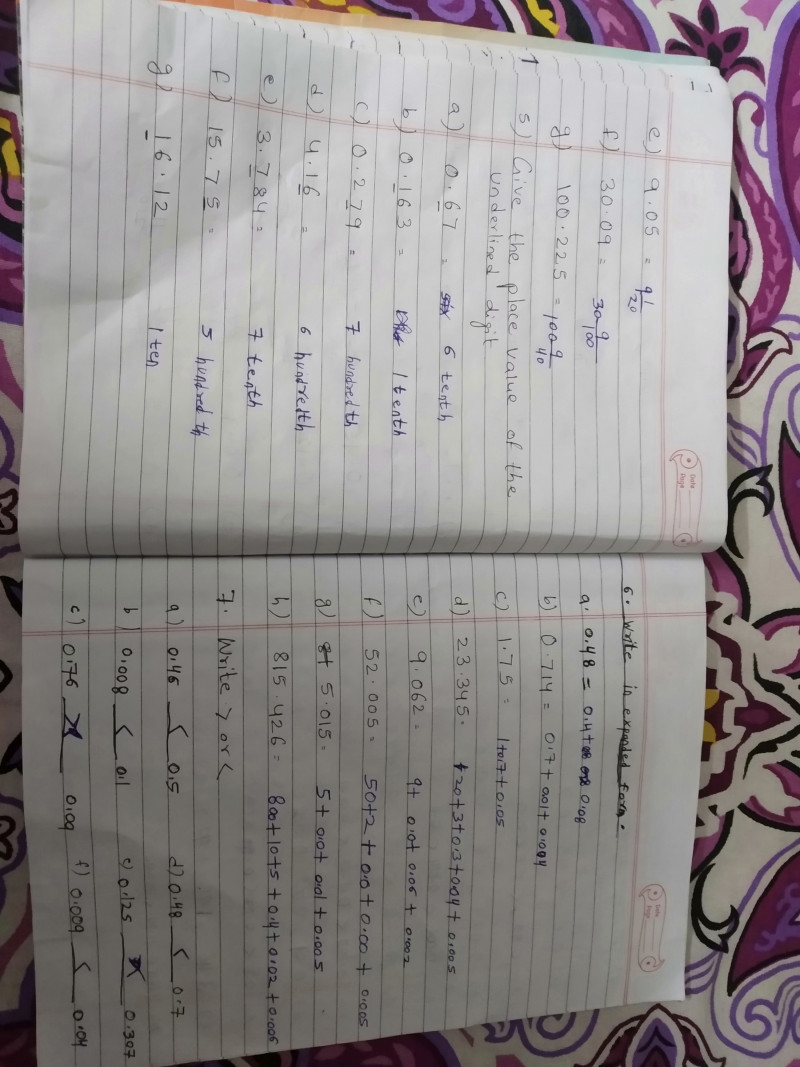 e) 9.05 = 9 1/20
f) 30.09 = 30 9/100
g) 100.225 = 100 9/40
5) Give the place value of the
underlined digit
a) 0.67 = 6 tenth
b) 0.163 = 1 tenth
c) 0.279 = 7 hundredth
d) 4.16 = 6 hundredth
e) 3.784 = 7 tenth
f) 15.75 = 5 hundredth
g) 16.12 1 ten
Date
Page
6. Write in expanded form.
a. 0.48 = 0.4 + 0.08
b) 0.714 = 0.7 + 0.01 + 0.004
c) 1.75 = 1+0.7+0.05
d) 23.345 = 20+3+0.3+0.04+0.005
e) 9.062 = 9+ 0.0+ 0.06 + 0.002
f) 52.005 = 50+2 + 0.0 + 0.00 + 0.005
g) 5.015 = 5 + 0.0 + 0.01 + 0.005
h) 815.426 = 800+10+5+0.4+0.02+0.006
7. Write > or <
a) 0.46 < 0.5 d) 0.48 < 0.7
b) 0.008 < 0.1 e) 0.125 < 0.307
c) 0.76 0.09 f) 0.009 < 0.04
Date
Page